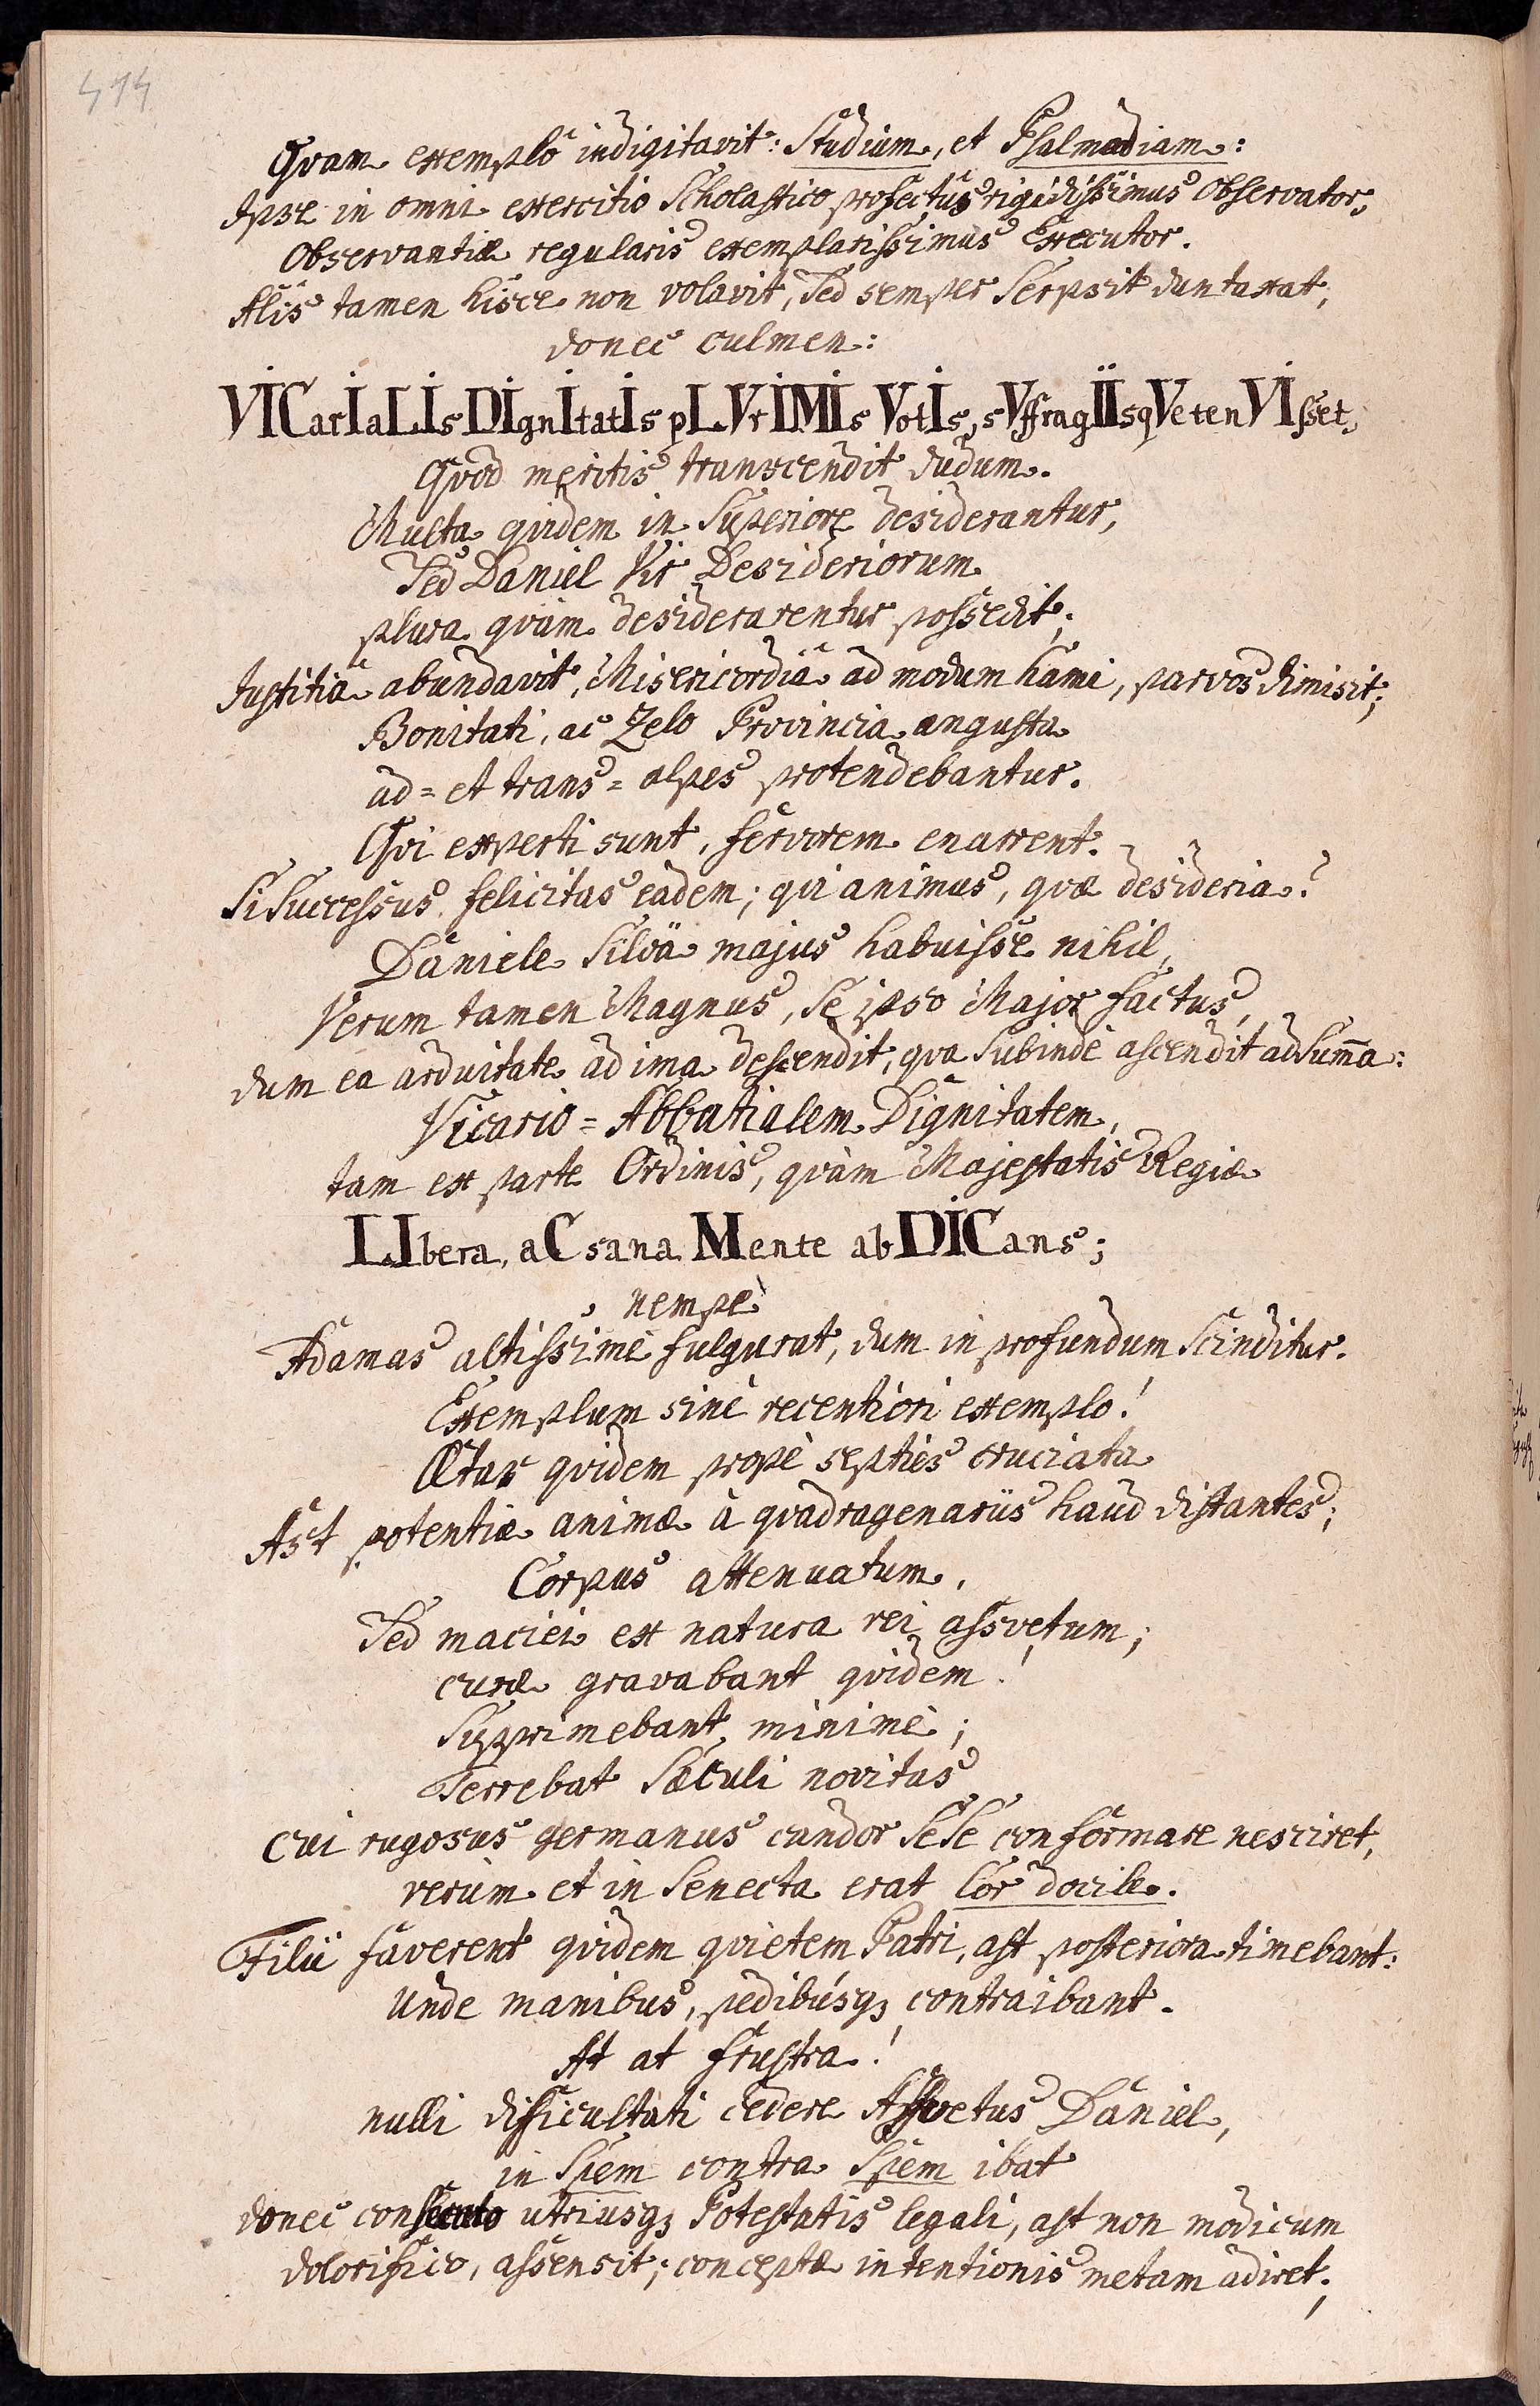 414
Qvam exemplo indigitavit: Studium, et Psalmodiam:
Ipse in omni exercitio Scholastico profectus rigidissimus Observator;
Observantiæ regularis exemplarissimus Executor.
Alis tamen hisce non volavit, Sed semper Serpsit duntaxat,
donec culmen:
VICarIaLIs DIgnItatIs pLVrIMIs VotIs, sVffragIIsqVe tenVIsset,
Qvod meritis transcendit dudum.
Multa qvidem in Superiore desiderantur,
Sed Daniel Vir Desideriorum
plura qvàm desiderarentur possedit;
Justitiâ abundavit, Misericordiâ ad modum hami, parvos dimisit;
Bonitati, ac Zelo Provincia angusta
ad= et trans= alpes protendebantur.
Qvi experti sunt, fervorem enarrent.
Si Successus felicitas eadem; qvi animus, qvæ desideria?
Daniele Silvä majus habuisse nihil,
Verum tamen Magnus, Se ipso Major factus,
dum ea arduitate ad ima descendit, qva Subindè ascendit ad Sum̄a:
Vicario=Abbatialem Dignitatem,
tam ex parte Ordinis, qvàm Majestatis Regiæ
LIbera, aC sana Mente abDICans;
nempè
Adamas altissimè fulgurat, dum in profundum Scinditur.
Exemplum sinè recentiori exemplo!
Ætas qvidem propè septies cruciata
Ast potentiæ animæ à qvadragenariis haud distantes;
Corpus attenuatum,
Sed maciei ex natura rei assvetum;
curæ gravabant qvidem!
Supprimebant minimè;
Terrebat Sæculi novitas
cui rugosus germanus candor SeSe conformare nesciret,
verùm et in Senecta erat Cor docile.
Filii faverent qvidem qvietem Patri, ast posteriora timebant:
Unde manibus, pedibúsqꝫ contraibant.
At at frustra!
nulli difficultati cedere Assvetus Daniel,
in Spem contra Spem ibat
donec utriusqꝫ Potestatis legali, ast non modicum
dolorifico, assensit; conceptæ intentionis metam adiret;